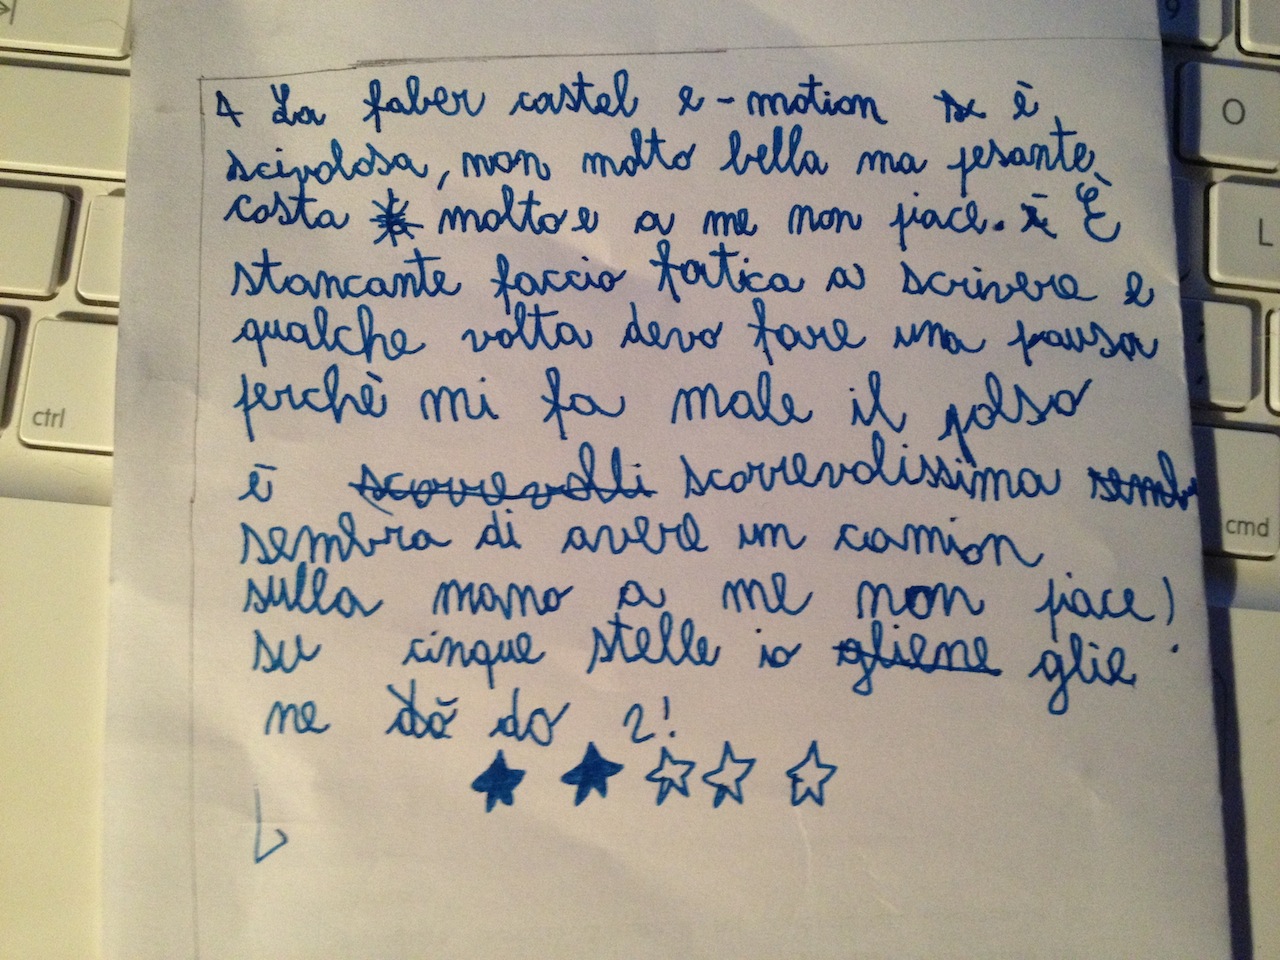 4 La faber castel e-motion se è
scivolosa, non molto bella ma pesante
costa molto e a me non piace. È È
stancante faccio fatica a scrivere e
qualche volta devo fare una pausa
perchè mi fa male il polso
è scorrevolli scorrevolissima sembr
sembra di avere un camion
sulla mano a me non piace!
su cinque stelle io gliene glie
ne dò do 2!
9
O
L
;
ctrl
cmd